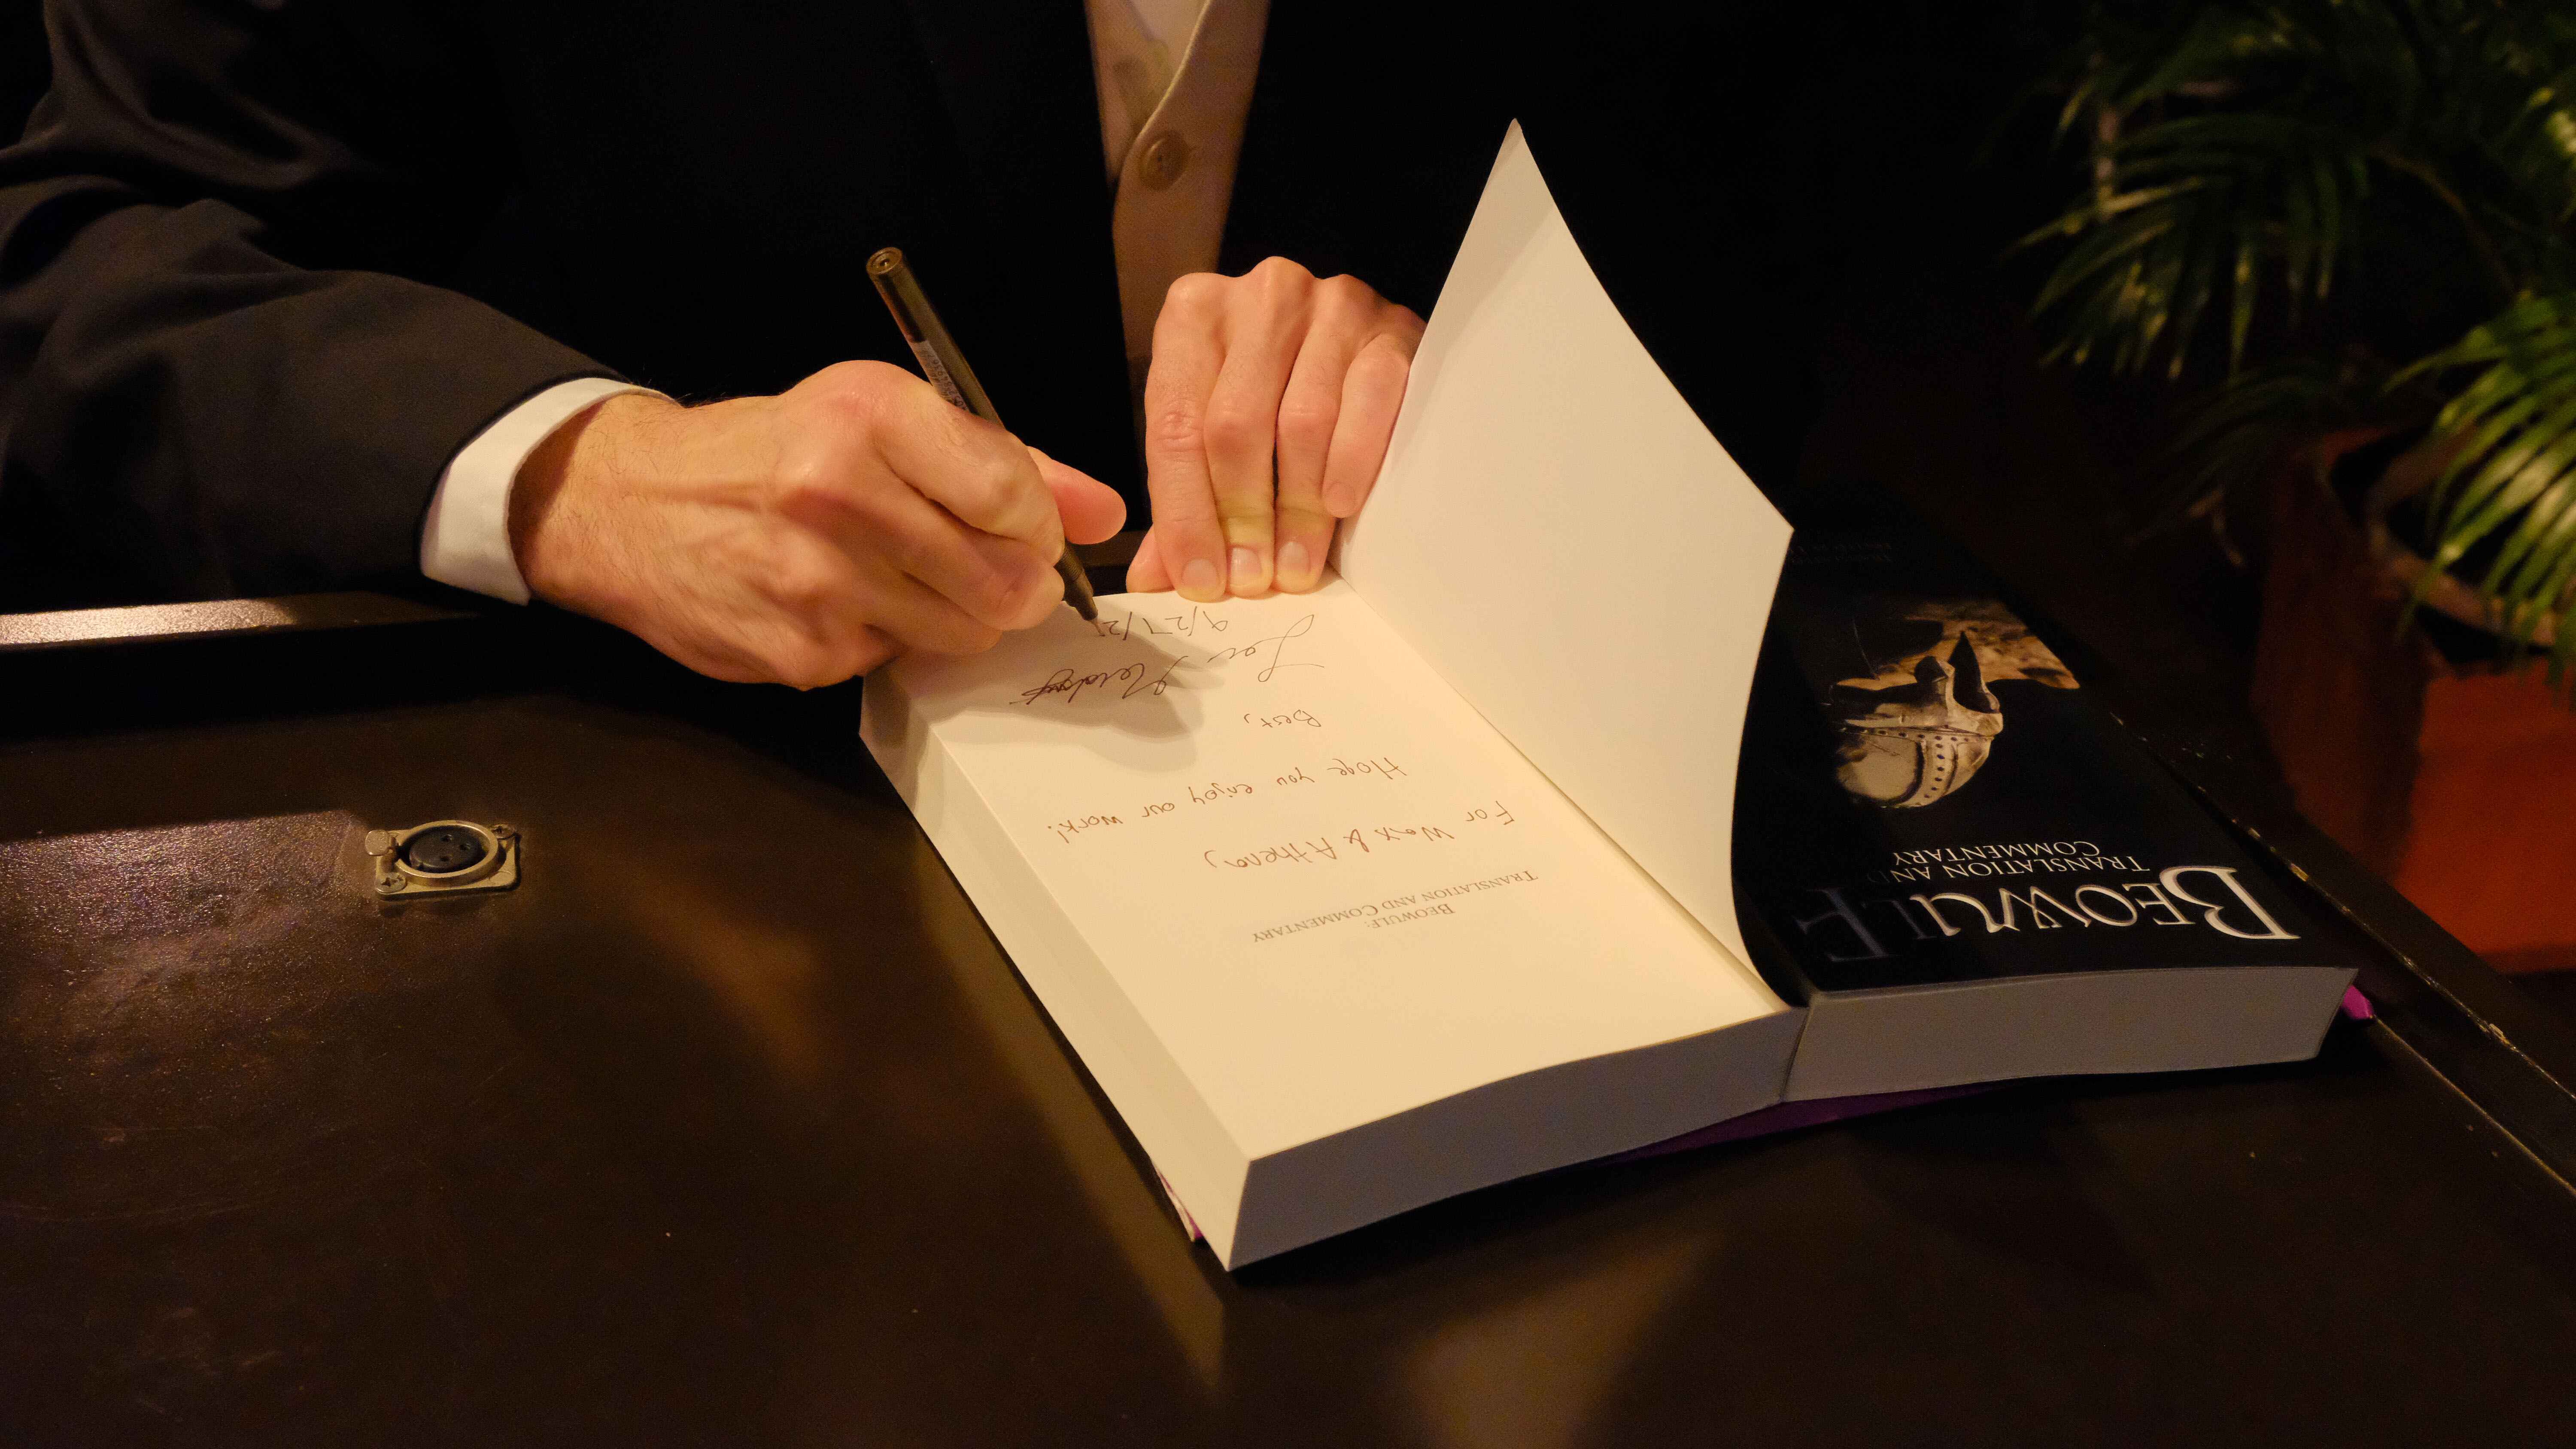 BEOWULF:
TRANSLATION AND COMMENTARY
For Wax & Athena,
Hope you enjoy our work!
Best,
9/27/2
BEOWULF
TRANSLATION AND
COMMENTARY